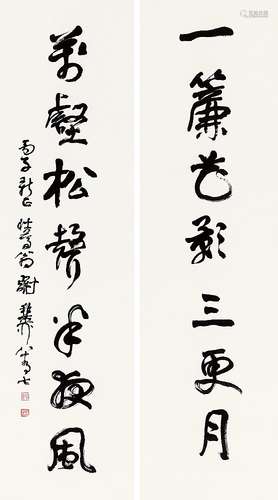 一簾花影三更月
萬壑松聲半夜風
丙子新正晴翁謝稚柳八十有七